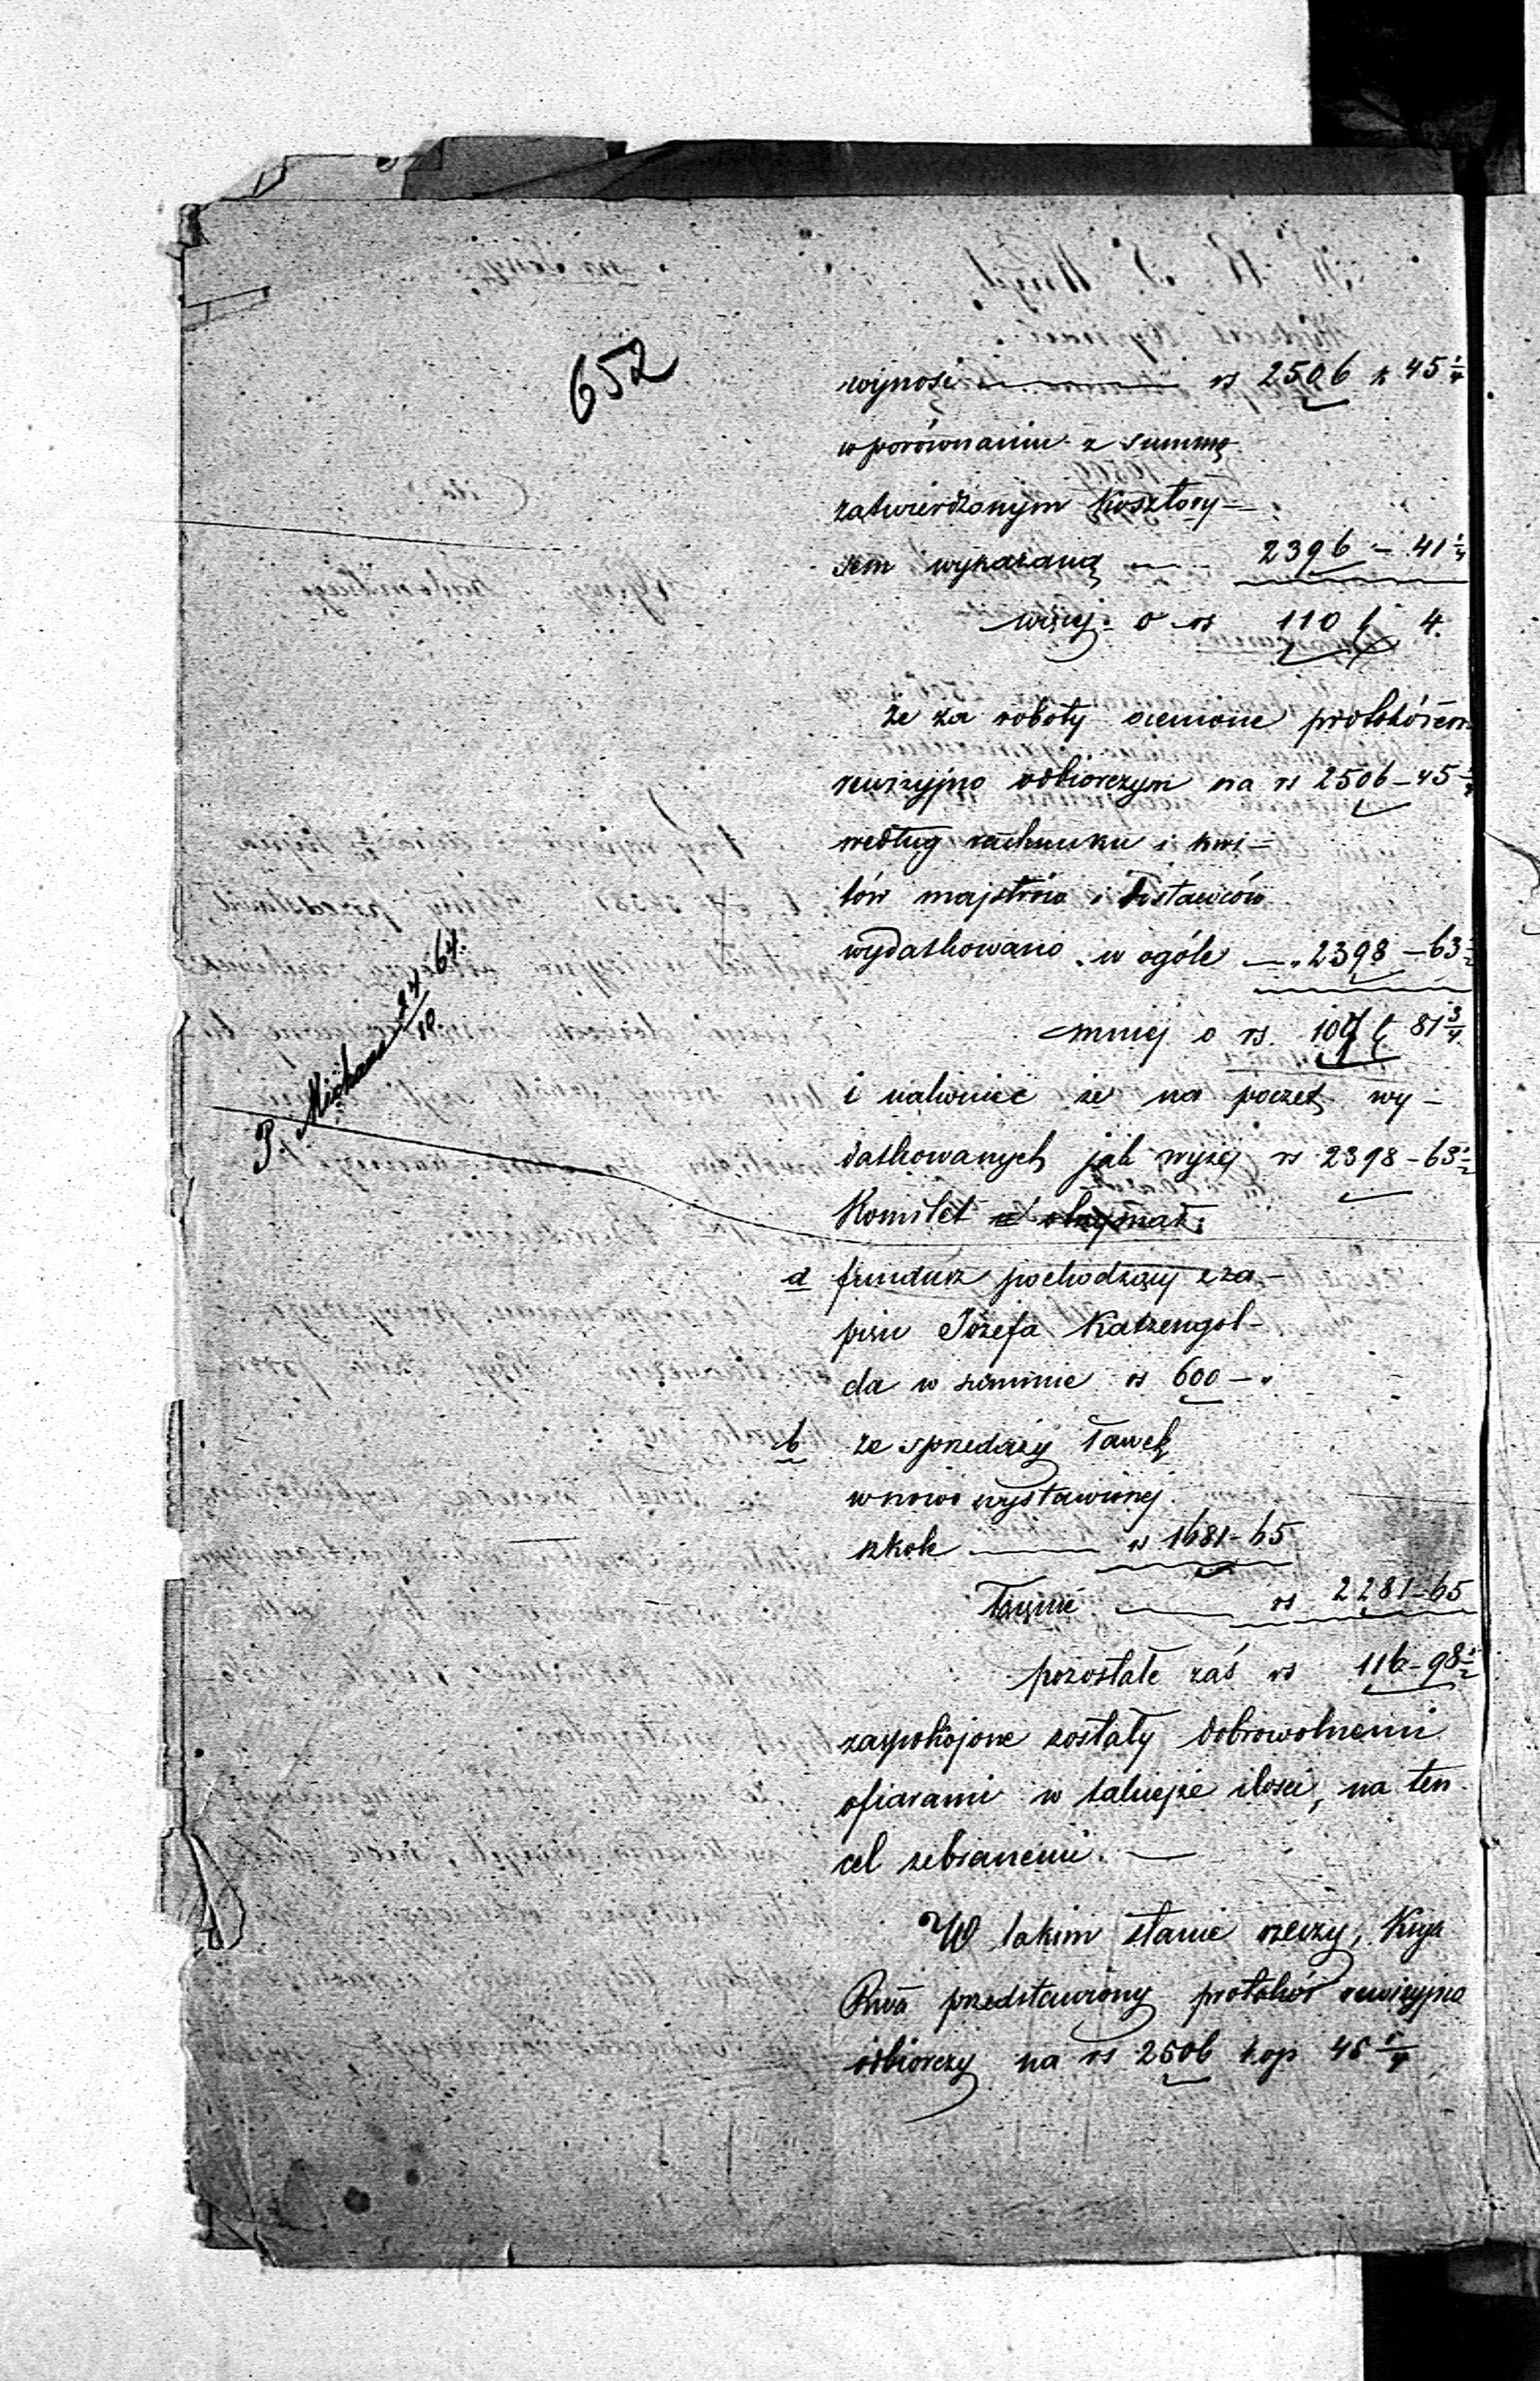 652
wynosi rs 2506 k 45 1/4
w porównaniu z summą
zatwierdzonym Kosztory-
sem wykazaną 2396 - 41 1/4
więcej o rs 110 k 4.
że za roboty ocenione protokółem
rewizyjno odbiorczym na rs 2506 - 45 1/4
według rachunku i kwi-
tów majstrów i Dostawców
wydatkowano w ogóle 2398 - 63 1/2
mniej o rs. 107 k 81 3/4
P. Michaux 24/10 64.
i nakoniec że na poczet wy-
datkowanych jak wyżej rs 2398 - 63 1/2
Komitet otrzymał:
a fundusz pochodzący z za-
pisu Józefa Katzengol-
da w summie rs 600 - "
b ze sprzedaży ławek
w nowo wystawionej
szkole rs 1681 - 65
Łącznie rs 2281 - 65
pozostałe zaś rs 116 - 98 1/2
zaspokojone zostały dobrowolnemi
ofiarami w takiejże ilości, na ten
cel zebranemi. —
W takim stanie rzeczy, Kuja
przedstawiony protokół rewizyjno
odbiorczy na rs 2506 kop 45 1/4